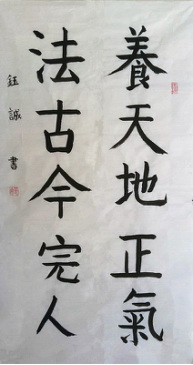 養天地正氣
法古今完人
鈺誠書